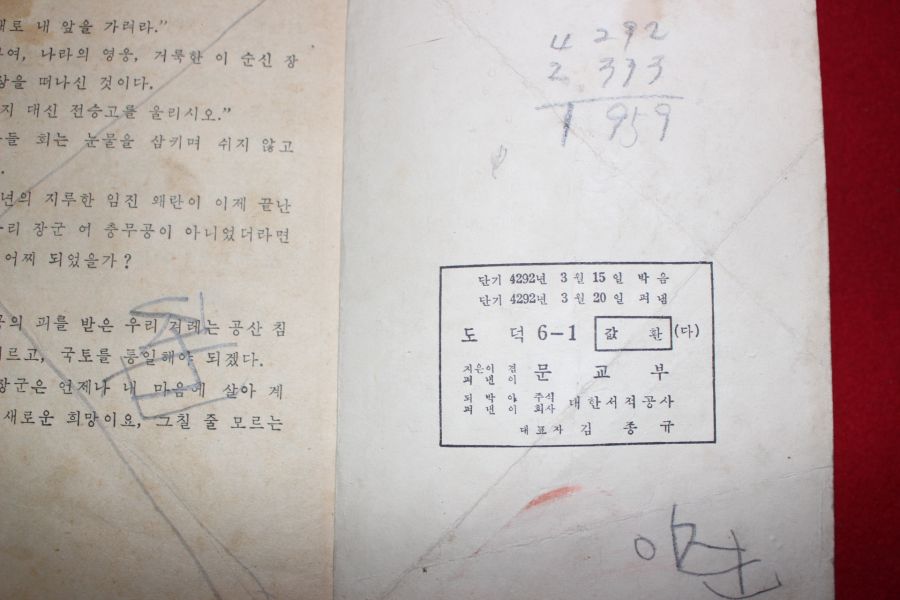 대로 내 앞을 가려라.”
여, 나라의 영웅, 거룩한 이 순신 장
장을 떠나신 것이다.
지 대신 전승고를 울리시오.”
들 회는 눈물을 삼키며 쉬지 않고
년의 지루한 임진 왜란이 이제 끝난
리 장군 어 충무공이 아니었더라면
어찌 되었을가?
의 피를 받은 우리 겨레는 공산 침
르고, 국토를 통일해야 되겠다.
장군은 언제나 내 마음에 살아 계
새로운 희망이요, 그칠 줄 모르는
4 292
2 333
1 959
단기 4292년 3월 15일 박음
단기 4292년 3월 20일 펴냄
도 덕 6-1 값 환 (다)
지은이 겸
펴낸이 문교부
되박아 주식
펴낸이 회사 대한서적공사
대표자 김종규